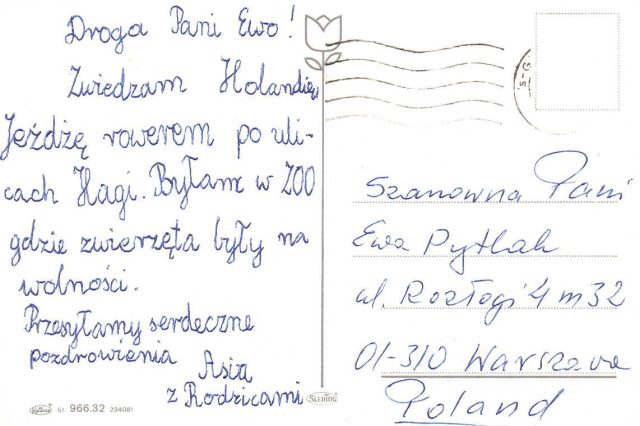 Droga Pani Ewo!
Zwiedzam Holandię,
Jeżdżę rowerem po uli-
cach Hagi. Byłam w ZOO
gdzie zwierzęta były na
wolności.
Przesyłamy serdeczne
pozdrowienia
Asia
z Rodzicami
51. 966.32 234081
Szanowna Pani
Ewa Pytlak
ul. Rozłogi 4 m 32
01-310 Warszawa
Poland